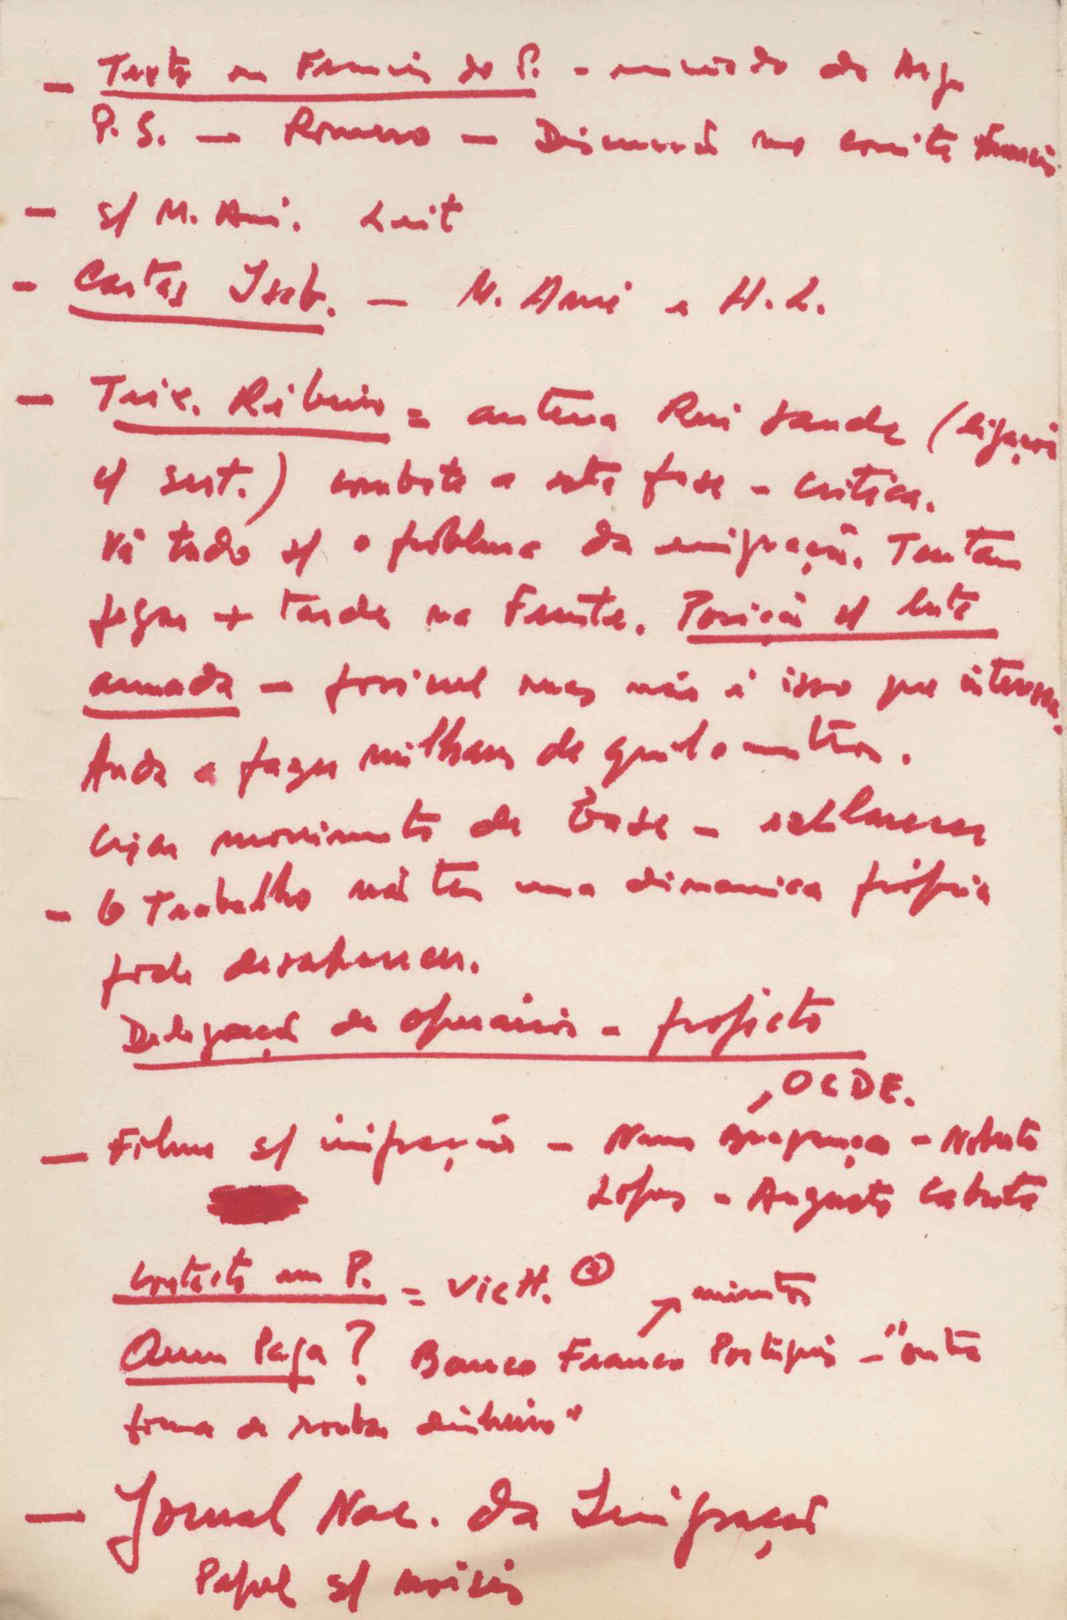 — Texto em Francês do P. - de Arg.
P. S. — Romero — Discussão no comité francês.
— s/ M. Ani. Leit
- Cartas Isab. — M. Ani e H. L.
— Teix. Ribeiro = antena Rui Sande (ligação
c/ sert.) combate a esta fase - critica.
Vê tudo s/ o problema da emigração. Tentam
jogar + tarde na Frente. Posição s/ luta
armada — possivel mas não é isso que interessa.
Anda a fazer milhares de quilometros.
Criar movimento de Base — esclarecer
- O Trabalho não tem uma dinamica própria
pode desaparecer.
Delegação de operários - projecto
OCDE.
— Filme s/ imigração — Nuno Bragança - Noberto
Lopes - Augusto Cabrita
Contacto em P. = Vic H.
Quem Paga? Banco Franco Portuguis - "outra
forma de roubar dinheiro"
— Jornal Nac. da Imigração
Papel s/